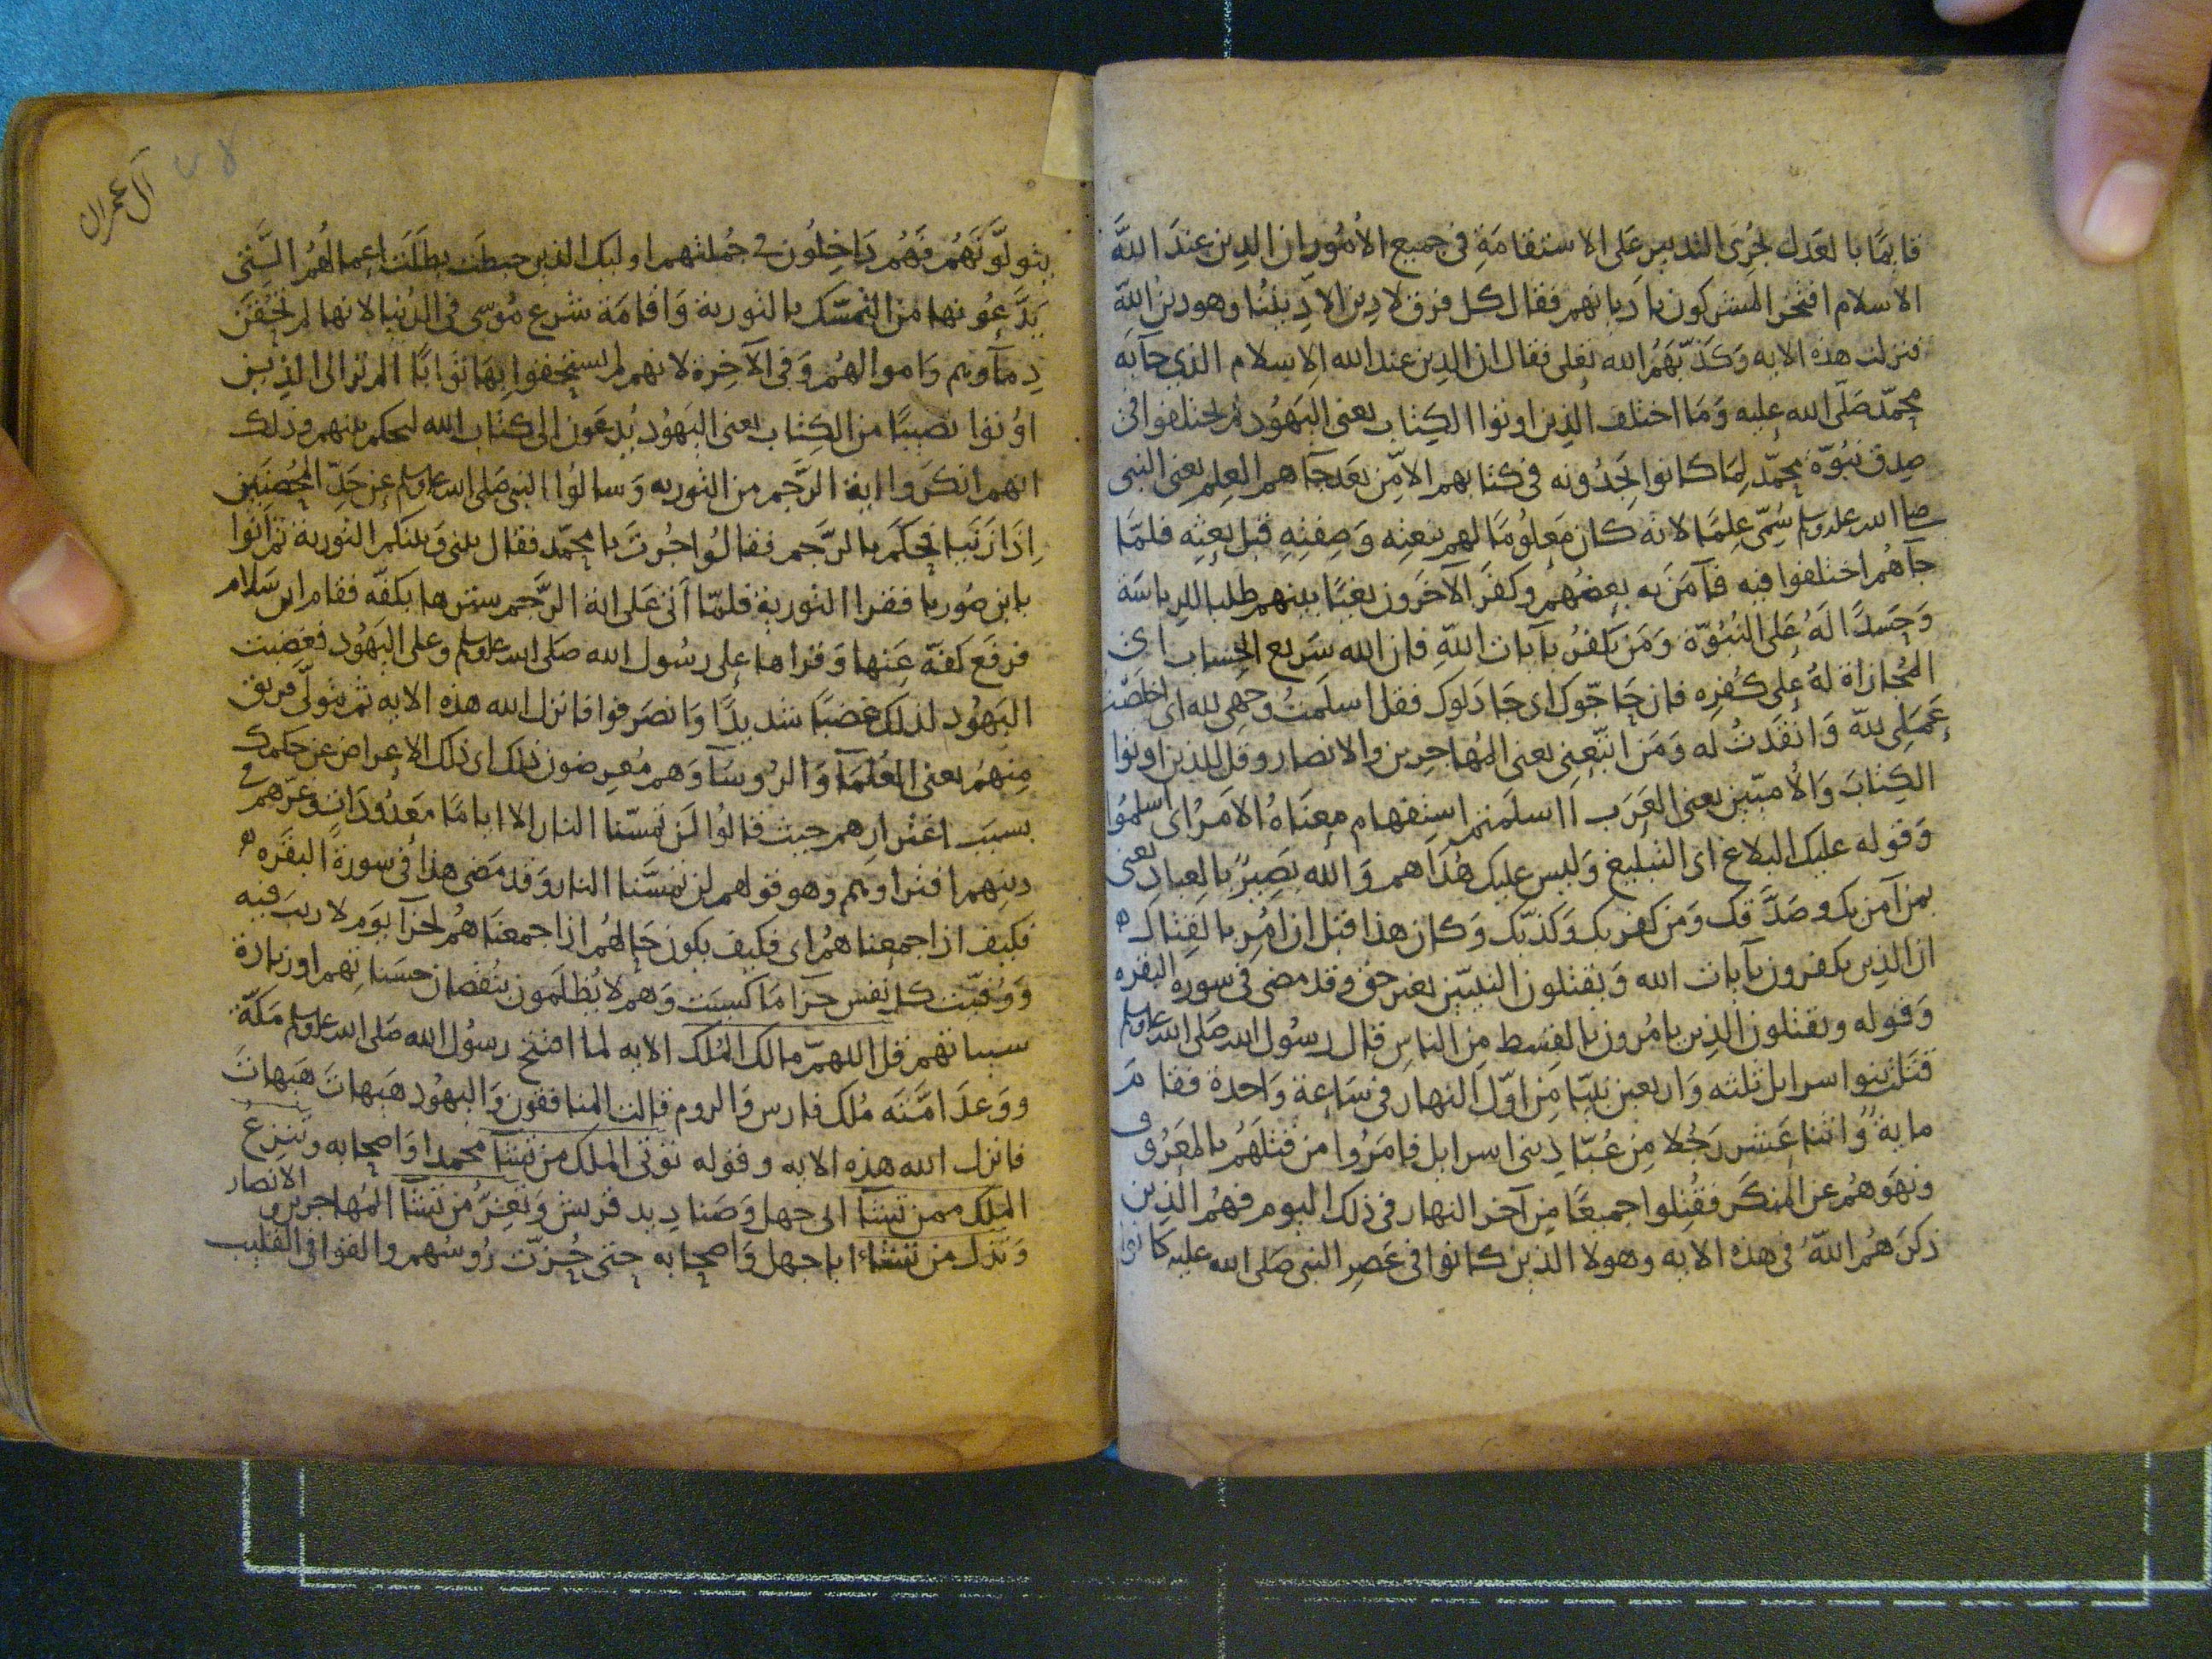 قايمًا بالعدل يجرى التدبير على الاستقامة فى جميع الأمور ان الدين عند الله
الاسلام افتخر المشركون باديانهم فقال كل فرق لا دين الا ديننا وهو دين الله
فنزلت هذه الايه وكذبهم الله تعلى فقال ان الدين عند الله الاسلام الذي جآ به
محمد صلى الله عليه وما اختلف الذين اوتوا الكتاب يعنى اليهود لم يختلفوا فى
صدق نبوة محمد لما كانوا يجدونه فى كتابهم الا من بعد جآهم العلم يعنى النبى
صلى الله عليه وسلم سمى علما لانه كان معلوما لهم بنعته وصفته قبل بعثه فلما
جآهم اختلفوا فيه فآمن به بعضهم وكفر الآخرون بغيا بينهم طلبا للرياسة
وحسدا له على النبوة ومن يكفر بآيات الله فان الله سريع الحساب اى
المجازاة له على كفره فان حاجوك اى جادلوك فقل اسلمت وجهى لله اى اخلصت
عملى لله وانقدت له ومن اتبعنى يعنى المهاجرين والانصار وقل للذين اوتوا
الكتاب والأميين يعنى العرب أاسلمتم استفهام معناه الامر اى اسلموا
وقوله عليك البلاغ اى التبليغ وليس عليك هداهم والله بصير بالعباد يعنى
بمن آمن بك وصدقك ومن كفر بك وكذبك وكان هذا قبل ان امر بالقتال ه
ان الذين يكفرون بآيات الله ويقتلون النبيين بغير حق وقد مضى فى سورة البقره
وقوله ويقتلون الذين يامرون بالقسط من الناس قال رسول الله صلى الله عليه وسلم
قتلت بنوا سرايل ثلثه واربعين نبيا من اول النهار فى ساعة واحدة فقام
ماية واثنا عشر رجلا من عباد بنى اسرايل فامروا من قتلهم بالمعروف
ونهوهم عن المنكر فقتلوا جميعا من آخر النهار فى ذلك اليوم فهم الذين
ذكرهم الله فى هذه الايه وهولا الذين كانوا فى عصر النبى صلى الله عليه كانوا
آل عمران
يتولونهم فهم داخلون فى جملتهم اوليك الذين حبطت بطلت اعمالهم التى
يدعونها من التمسك بالتورية واقامة شرع موسى فى الدنيا لانها لم تحقن
دمآوهم واموالهم وفى الآخرة لانهم لم يستحقوا بها ثوابا الم تر الى الذين
اوتوا نصيبا من الكتاب يعنى اليهود يدعون الى كتاب الله ليحكم بينهم وذلك
انهم انكروا اية الرجم من التوريه وسالوا النبى صلى الله عليه وسلم عن حد المحصنين
اذا زنيا فحكم بالرجم فقالوا جرت يا محمد فقال بينى وبينكم التورية ثم اتوا
بابن صوريا فقرا التورية فلما اتى على اية الرجم سترها بكفه فقام ابن سلام
فرفع كفه عنها وقراها على رسول الله صلى الله عليه وسلم وعلى اليهود فغضبت
اليهود لذلك غضبا شديدا وانصرفوا فانزل الله هذه الايه ثم يتولى فريق
منهم يعنى العلمآ والروسآ وهم معرضون ذلك اى ذلك الاعراض عن حكمك
بسبب اغترارهم حيث قالوا لن تمسنا النار الا اياما معدودات وغرهم فى
دينهم افتراوهم وهو قولهم لن تمسنا النار وقد مضى هذا فى سورة البقره ه
فكيف اذا جمعناهم اى فكيف يكون حالهم اذا جمعناهم لجزآ يوم لا ريب فيه
ووفيت كل نفس جزا ما كسبت وهم لا يظلمون بنقصان حسناتهم او زيادة
سيياتهم قل اللهم مالك الملك الايه لما افتتح رسول الله صلى الله عليه وسلم مكة
ووعد امته ملك فارس والروم قالت المنافقون واليهود هيهات هيهات
فانزل الله هذه الايه وقوله توتى الملك من تشآ محمدا واصحابه وتنزع
الملك ممن تشآ ابى جهل وصناديد قريش وتعز من تشآ المهاجرين و الانصار
وتذل من تشاء ابا جهل واصحابه حتى حزت روسهم والقوا فى القليب